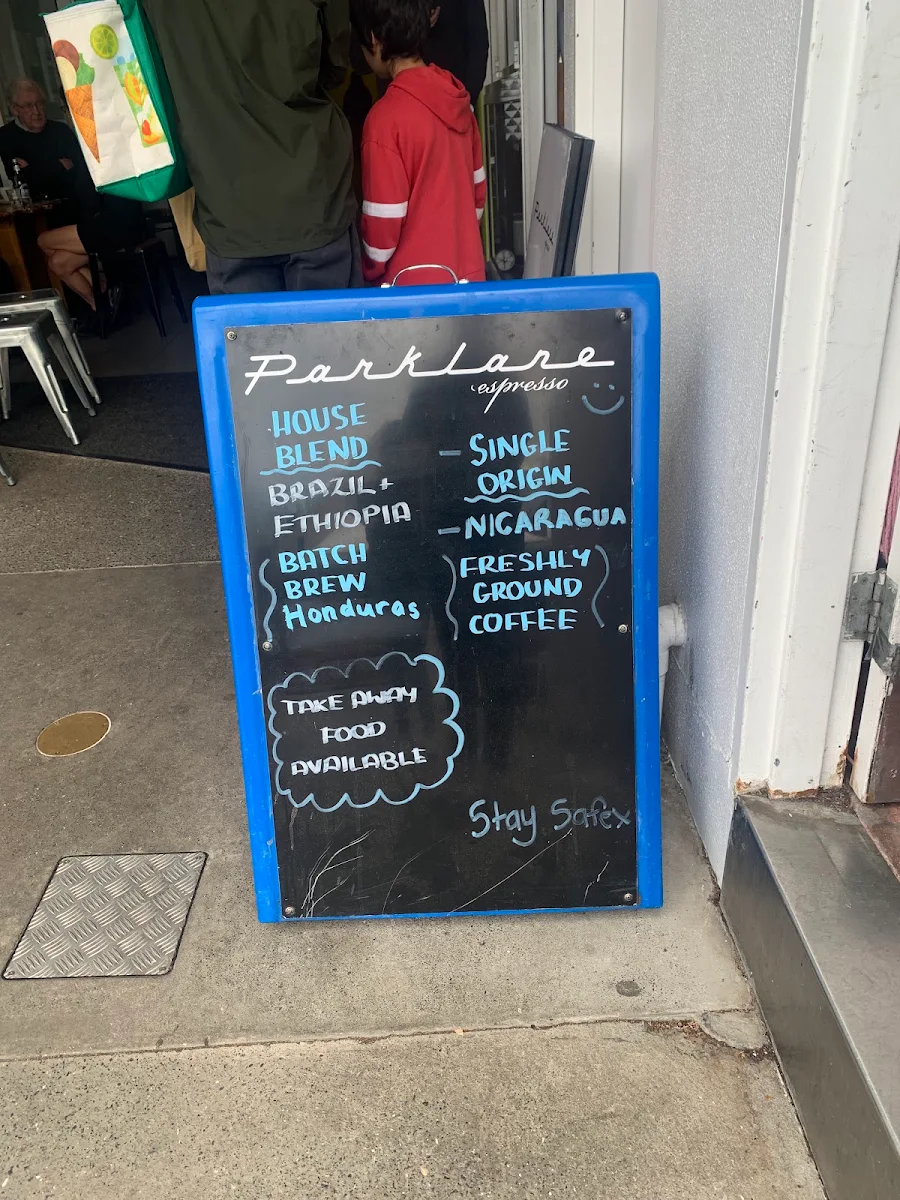 Parklane
espresso
HOUSE
BLEND
BRAZIL+
ETHIOPIA
BATCH
BREW
Honduras
- SINGLE
ORIGIN
- NICARAGUA
(FRESHLY
GROUND
COFFEE)
TAKE AWAY
FOOD
AVAILABLE
Stay Safex